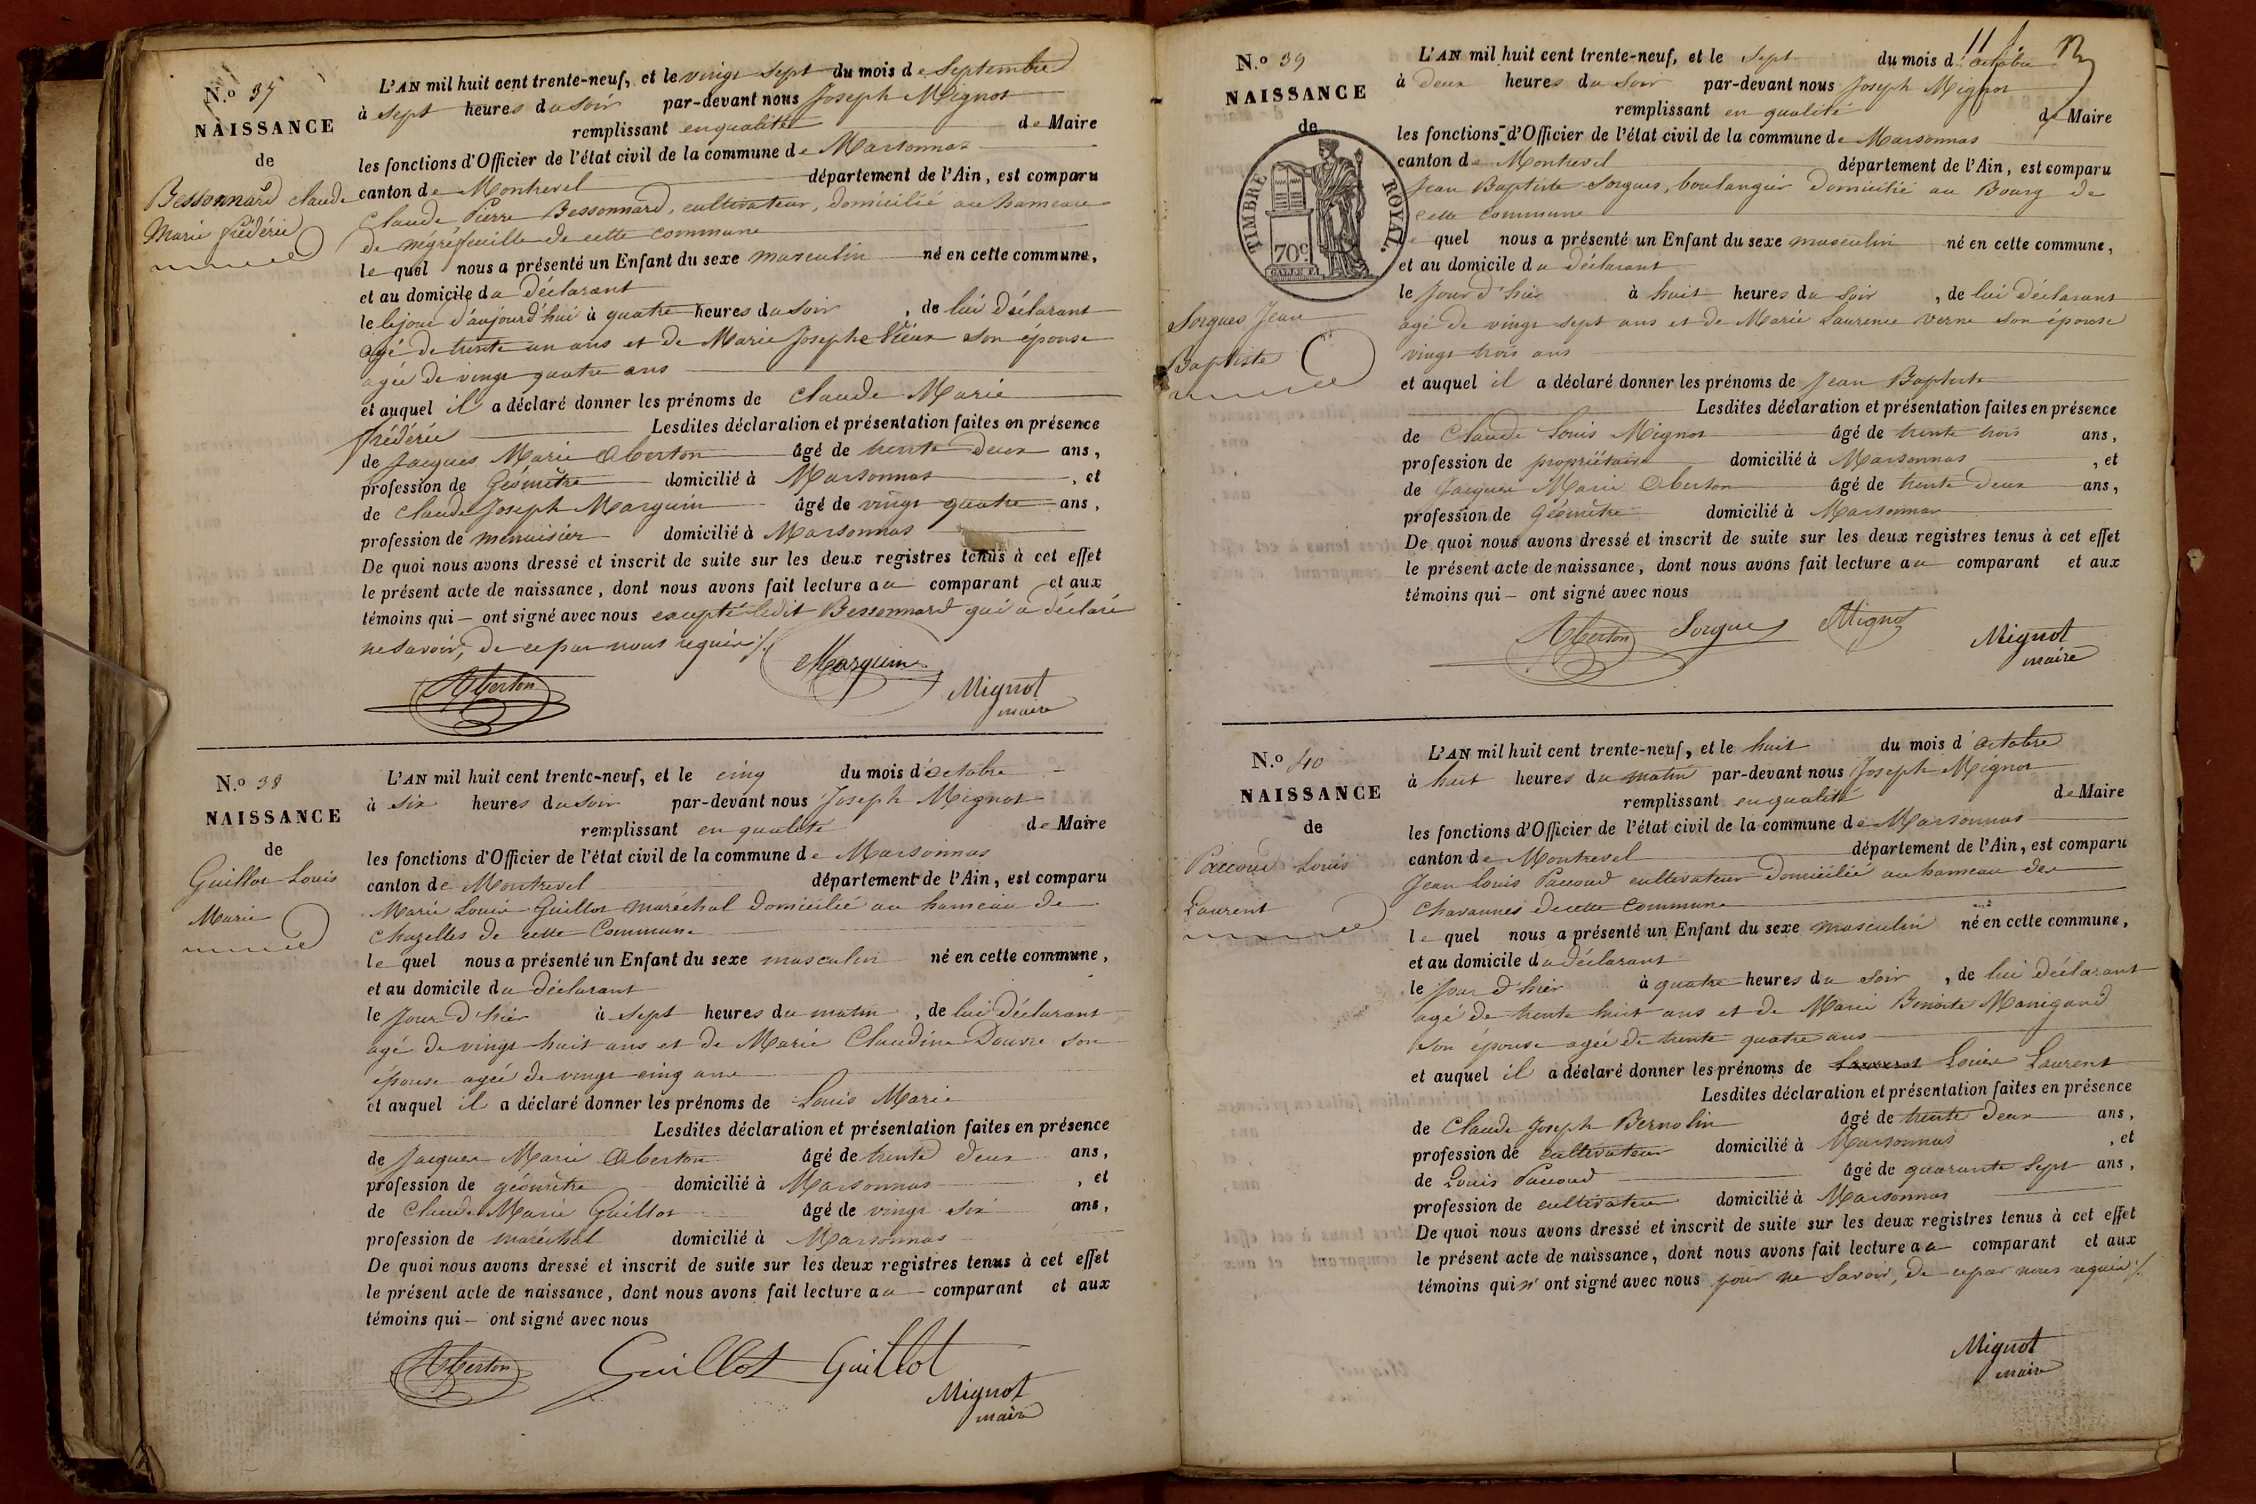 N.º 37
NAISSANCE
de
Bessonnard claude
Marie frédéric
L'AN mil huit cent trente-neuf, et le vingt sept du mois de Septembre
à sept heures du soir par-devant nous Joseph Mignot
remplissant en qualité de Maire
les fonctions d'Officier de l'état civil de la commune de Marsonnas
canton de Montrevel département de l'Ain, est comparu
Claude Pierre Bessonnard, cultivateur, domicilié au hameau
de négrefeuille de cette commune
lequel nous a présenté un Enfant du sexe masculin né en cette commune,
et au domicile du déclarant
le lejour d'aujourd'hui à quatre heures du soir, de lui déclarant
agé de trente un ans et de Marie Josephe son épouse
agée de vingt quatre ans
et auquel il a déclaré donner les prénoms de Claude Marie
frédéric Lesdites déclaration et présentation faites en présence
de Jacques Marie Oberton âgé de trente deux ans,
profession de Géomètre domicilié à Marsonnas, et
de claude Joseph Marguin âgé de vingt quatre ans,
profession de menuisier domicilié à Marsonnas
De quoi nous avons dressé et inscrit de suite sur les deux registres tenus à cet effet
le présent acte de naissance, dont nous avons fait lecture au comparant et aux
témoins qui – ont signé avec nous excepté ledit Bessonnard qui a déclaré
ne savoir, de ce par nous requis ./.
Oberton Marguin Mignot
maire
N.º 38
NAISSANCE
de
Guillot Louis
Marie
L'AN mil huit cent trente-neuf, et le cinq du mois d'octobre
à six heures du soir par-devant nous Joseph Mignot
remplissant en qualité de Maire
les fonctions d'Officier de l'état civil de la commune de Marsonnas
canton de Montrevel département de l'Ain, est comparu
Marie Louis Guillot maréchal domicilié au hameau de
Chazelles de cette Commune
lequel nous a présenté un Enfant du sexe masculin né en cette commune,
et au domicile du déclarant
le jour d'hier à sept heures du matin, de lui déclarant
agé de vingt huit ans et de Marie Claudine Douvre son
épouse agée de vingt cinq ans
et auquel il a déclaré donner les prénoms de Louis Marie
Lesdites déclaration et présentation faites en présence
de Jacques Marie Oberton âgé de trente deux ans,
profession de géomètre domicilié à Marsonnas, et
de Claude Marie Guillot âgé de vingt six ans,
profession de maréchal domicilié à Marsonnas
De quoi nous avons dressé et inscrit de suite sur les deux registres tenus à cet effet
le présent acte de naissance, dont nous avons fait lecture au comparant et aux
témoins qui – ont signé avec nous
Oberton Guillot Guillot
Mignot
maire
11
N.º 39
NAISSANCE
de
TIMBRE ROYAL.
70 c
Sorgues Jean
Baptiste
L'AN mil huit cent trente-neuf, et le sept du mois d'octobre
à deux heures du soir par-devant nous Joseph Mignot
remplissant en qualité de Maire
les fonctions d'Officier de l'état civil de la commune de Marsonnas
canton de Montrevel département de l'Ain, est comparu
Jean Baptiste Sorgues, boulanger domicilié au Bourg de
cette commune
lequel nous a présenté un Enfant du sexe masculin né en cette commune,
et au domicile du déclarant
le jour d'hier à huit heures du soir, de lui déclarant
agé de vingt sept ans et de Marie Laurence Verne son épouse
vingt trois ans
et auquel il a déclaré donner les prénoms de Jean Baptiste
Lesdites déclaration et présentation faites en présence
de Claude Louis Mignot âgé de trente trois ans,
profession de propriétaire domicilié à Marsonnas, et
de Jacques Marie Oberton âgé de trente deux ans,
profession de Géomètre domicilié à Marsonnas
De quoi nous avons dressé et inscrit de suite sur les deux registres tenus à cet effet
le présent acte de naissance, dont nous avons fait lecture au comparant et aux
témoins qui – ont signé avec nous
Oberton Sorgues Mignot Mignot
maire
N.º 40
NAISSANCE
de
Paccoud Louis
Laurent
L'AN mil huit cent trente-neuf, et le huit du mois d'octobre
à huit heures du matin par-devant nous Joseph Mignot
remplissant en qualité de Maire
les fonctions d'Officier de l'état civil de la commune de Marsonnas
canton de Montrevel département de l'Ain, est comparu
Jean Louis Paccoud cultivateur domicilié au hameau des
Chavannes de cette commune
lequel nous a présenté un Enfant du sexe masculin né en cette commune,
et au domicile du déclarant
le jour d'hier à quatre heures du soir, de lui déclarant
agé de trente huit ans et de Marie Benoite Manigand
son épouse agée de trente quatre ans
et auquel il a déclaré donner les prénoms de Louis Laurent
Lesdites déclaration et présentation faites en présence
de Claude Joseph Bernolin âgé de trente deux ans,
profession de cultivateur domicilié à Marsonnas, et
de Louis Paccoud âgé de quarante sept ans,
profession de cultivateur domicilié à Marsonnas
De quoi nous avons dressé et inscrit de suite sur les deux registres tenus à cet effet
le présent acte de naissance, dont nous avons fait lecture au comparant et aux
témoins qui n'ont signé avec nous pour ne savoir, de ce par nous requis ./.
Mignot
maire